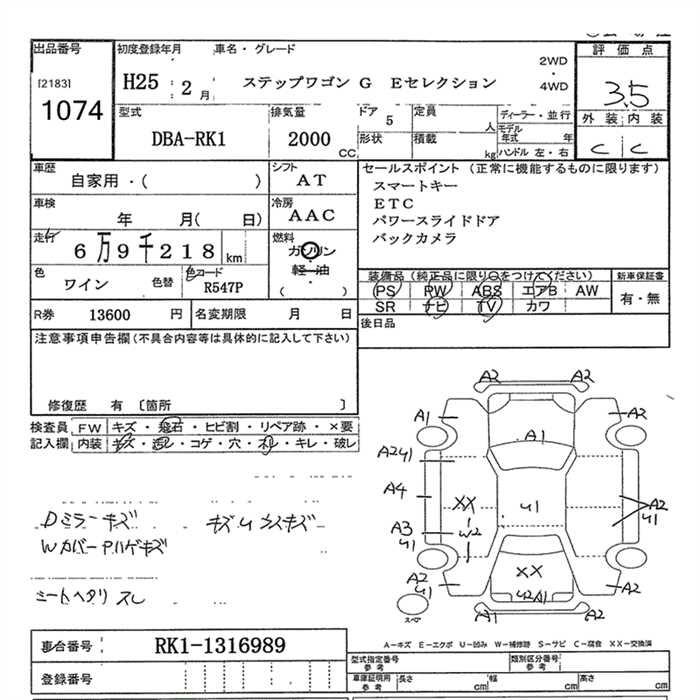 出品番号
[2183]
1074
初度登録年月
H25 : 2 月
車名・グレード
ステップワゴン G Eセレクション
2WD
・
4WD
評価点
3.5
外装 内装
C C
型式
DBA-RK1
排気量
2000 CC
ドア
5
形状
定員
人
積載
kg
ディーラー・並行
モデル年式 年
ハンドル 左・右
車歴
自家用・( )
シフト
AT
車検
年 月( 日)
冷房
AAC
走行
6万9千218 km
燃料
ガソリン
軽・油
( )
色
ワイン
色替
色コード
R547P
R券 13600 円
名変期限 月 日
セールスポイント (正常に機能するものに限ります)
スマートキー
ETC
パワースライドドア
バックカメラ
装備品(純正品に限り○をつけてください)
PS PW ABS エアB AW
SR ナビ TV カワ
新車保証書
有・無
後日品
注意事項申告欄(不具合内容等は具体的に記入して下さい)
修復歴 有 〔箇所 〕
検査員記入欄
FW キズ・飛石・ヒビ割・リペア跡・×要
内装 キズ・汚レ・コゲ・穴・オレ・キレ・破レ
Dミラーキズ
Wカバー Pハゲキズ
シートヘタリ スレ
A2 A2
A1 A2
A1
A2U1
A4
XX U1 A2
U1
A3
U1
W2
A2
U1
XX
A2
U2A1
スペア
A2 A2
A-キズ E-エクボ U-凹み W-補修跡 S-サビ C-腐食 XX-交換済
車台番号
RK1-1316989
登録番号
型式指定番号
参考
類別区分番号
参考
車庫証明用
参考
長さ cm
幅 cm
高さ cm